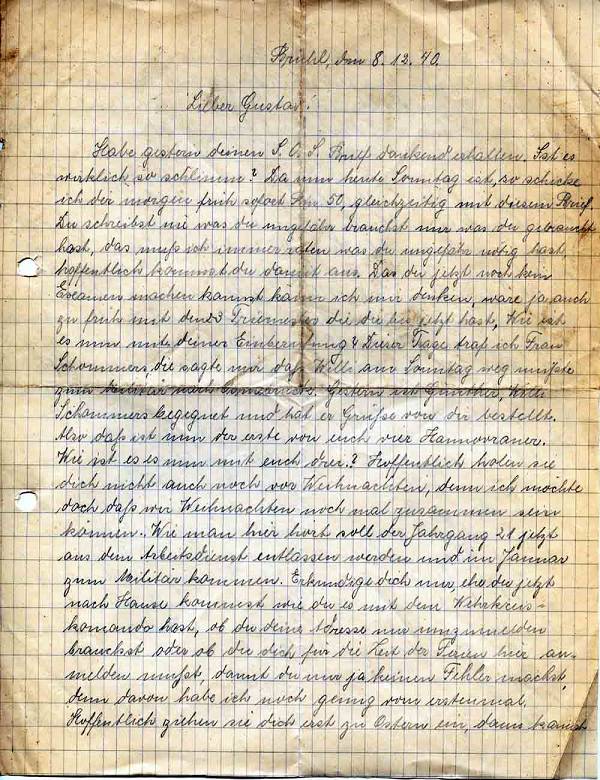 Brühl, den 8.12.40.
Lieber Gustav!
Habe gestern deinen S.O.S. Brief dankend erhalten. Ist es
wirklich so schlimm? Da nun heute Sonntag ist, so schicke
ich dir morgen früh sofort Rm 50, gleichzeitig mit diesem Brief.
Du schreibst nie was du ungefähr brauchst nur was du gebraucht
hast, das muss ich immer raten was du ungefähr nötig hast
hoffentlich kommst du damit aus. Das du jetzt noch kein
Examen machen kannst kann ich mir denken, wäre ja auch
zu früh mit den 3 Trimester die du bis jetzt hast, Wie ist
es nun mit deiner Einberufung? Dieser Tage traf ich Frau
Schommers, die sagte mir daß Willi am Sonntag weg müsste
zum Militär nach Gestern ist Günther, Willi
Schommers begegnet und hat er Grüße von dir bestellt.
Also daß ist nun der erste von euch vier Hannovraner.
Wie ist es es nun mit euch drei? Hoffentlich holen sie
dich nicht auch noch vor Weihnachten, denn ich möchte
doch daß wir Weihnachten noch mal zusammen sein
können. Wie man hier hört soll der Jahrgang 21 jetzt
aus dem Arbeitsdienst entlassen werden und im Januar
zum Militär kommen. Erkundige dich nur, ehe du jetzt
nach Hause kommst wie du es mit dem Wehrkreis-
komando hast, ob du deine Adresse nur umzumelden
brauchst oder ob du dich für die Zeit der Ferien hier an-
melden mußt, damit du nur ja keinen Fehler machst,
denn davon habe ich noch genug vom erstenmal.
Hoffentlich ziehen sie dich erst zu Ostern ein, dann kannst